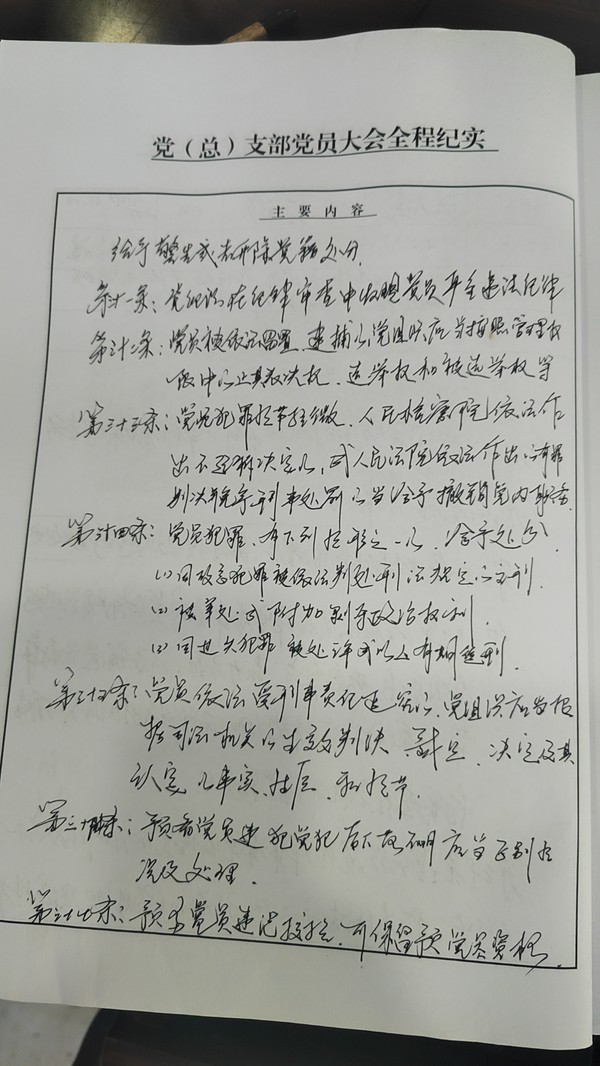 党（总）支部党员大会全程纪实
主要内容
给予警告或者开除党籍处分
第三十一条：党组织在纪律审查中发现党员严重违法纪律
第三十二条：党员被依法留置、逮捕的党组织应当按照管理权
限中止其表决权、选举权和被选举权等
第三十三条：党员犯罪情节轻微、人民检察院依法作
出不起诉决定的，或人民法院依法作出的有罪
判决免予刑事处罚的当给予撤销党内职务
第三十四条：党员犯罪、有下列情形之一的、给予处分
(1) 因故意犯罪被依法判处刑法规定的主刑
(2) 被单处或附加剥夺政治权利
(3) 因过失犯罪被处三年或以上有期徒刑
第三十五条：党员依法受刑事责任追究的、党组织应当根
据司法机关的生效判决、裁定、决定及其
认定的事实、性质、和情节
第三十条：预备党员违犯党犯应当
况及处理．
第三十七条：预备党员违纪、可保留预党员资格．